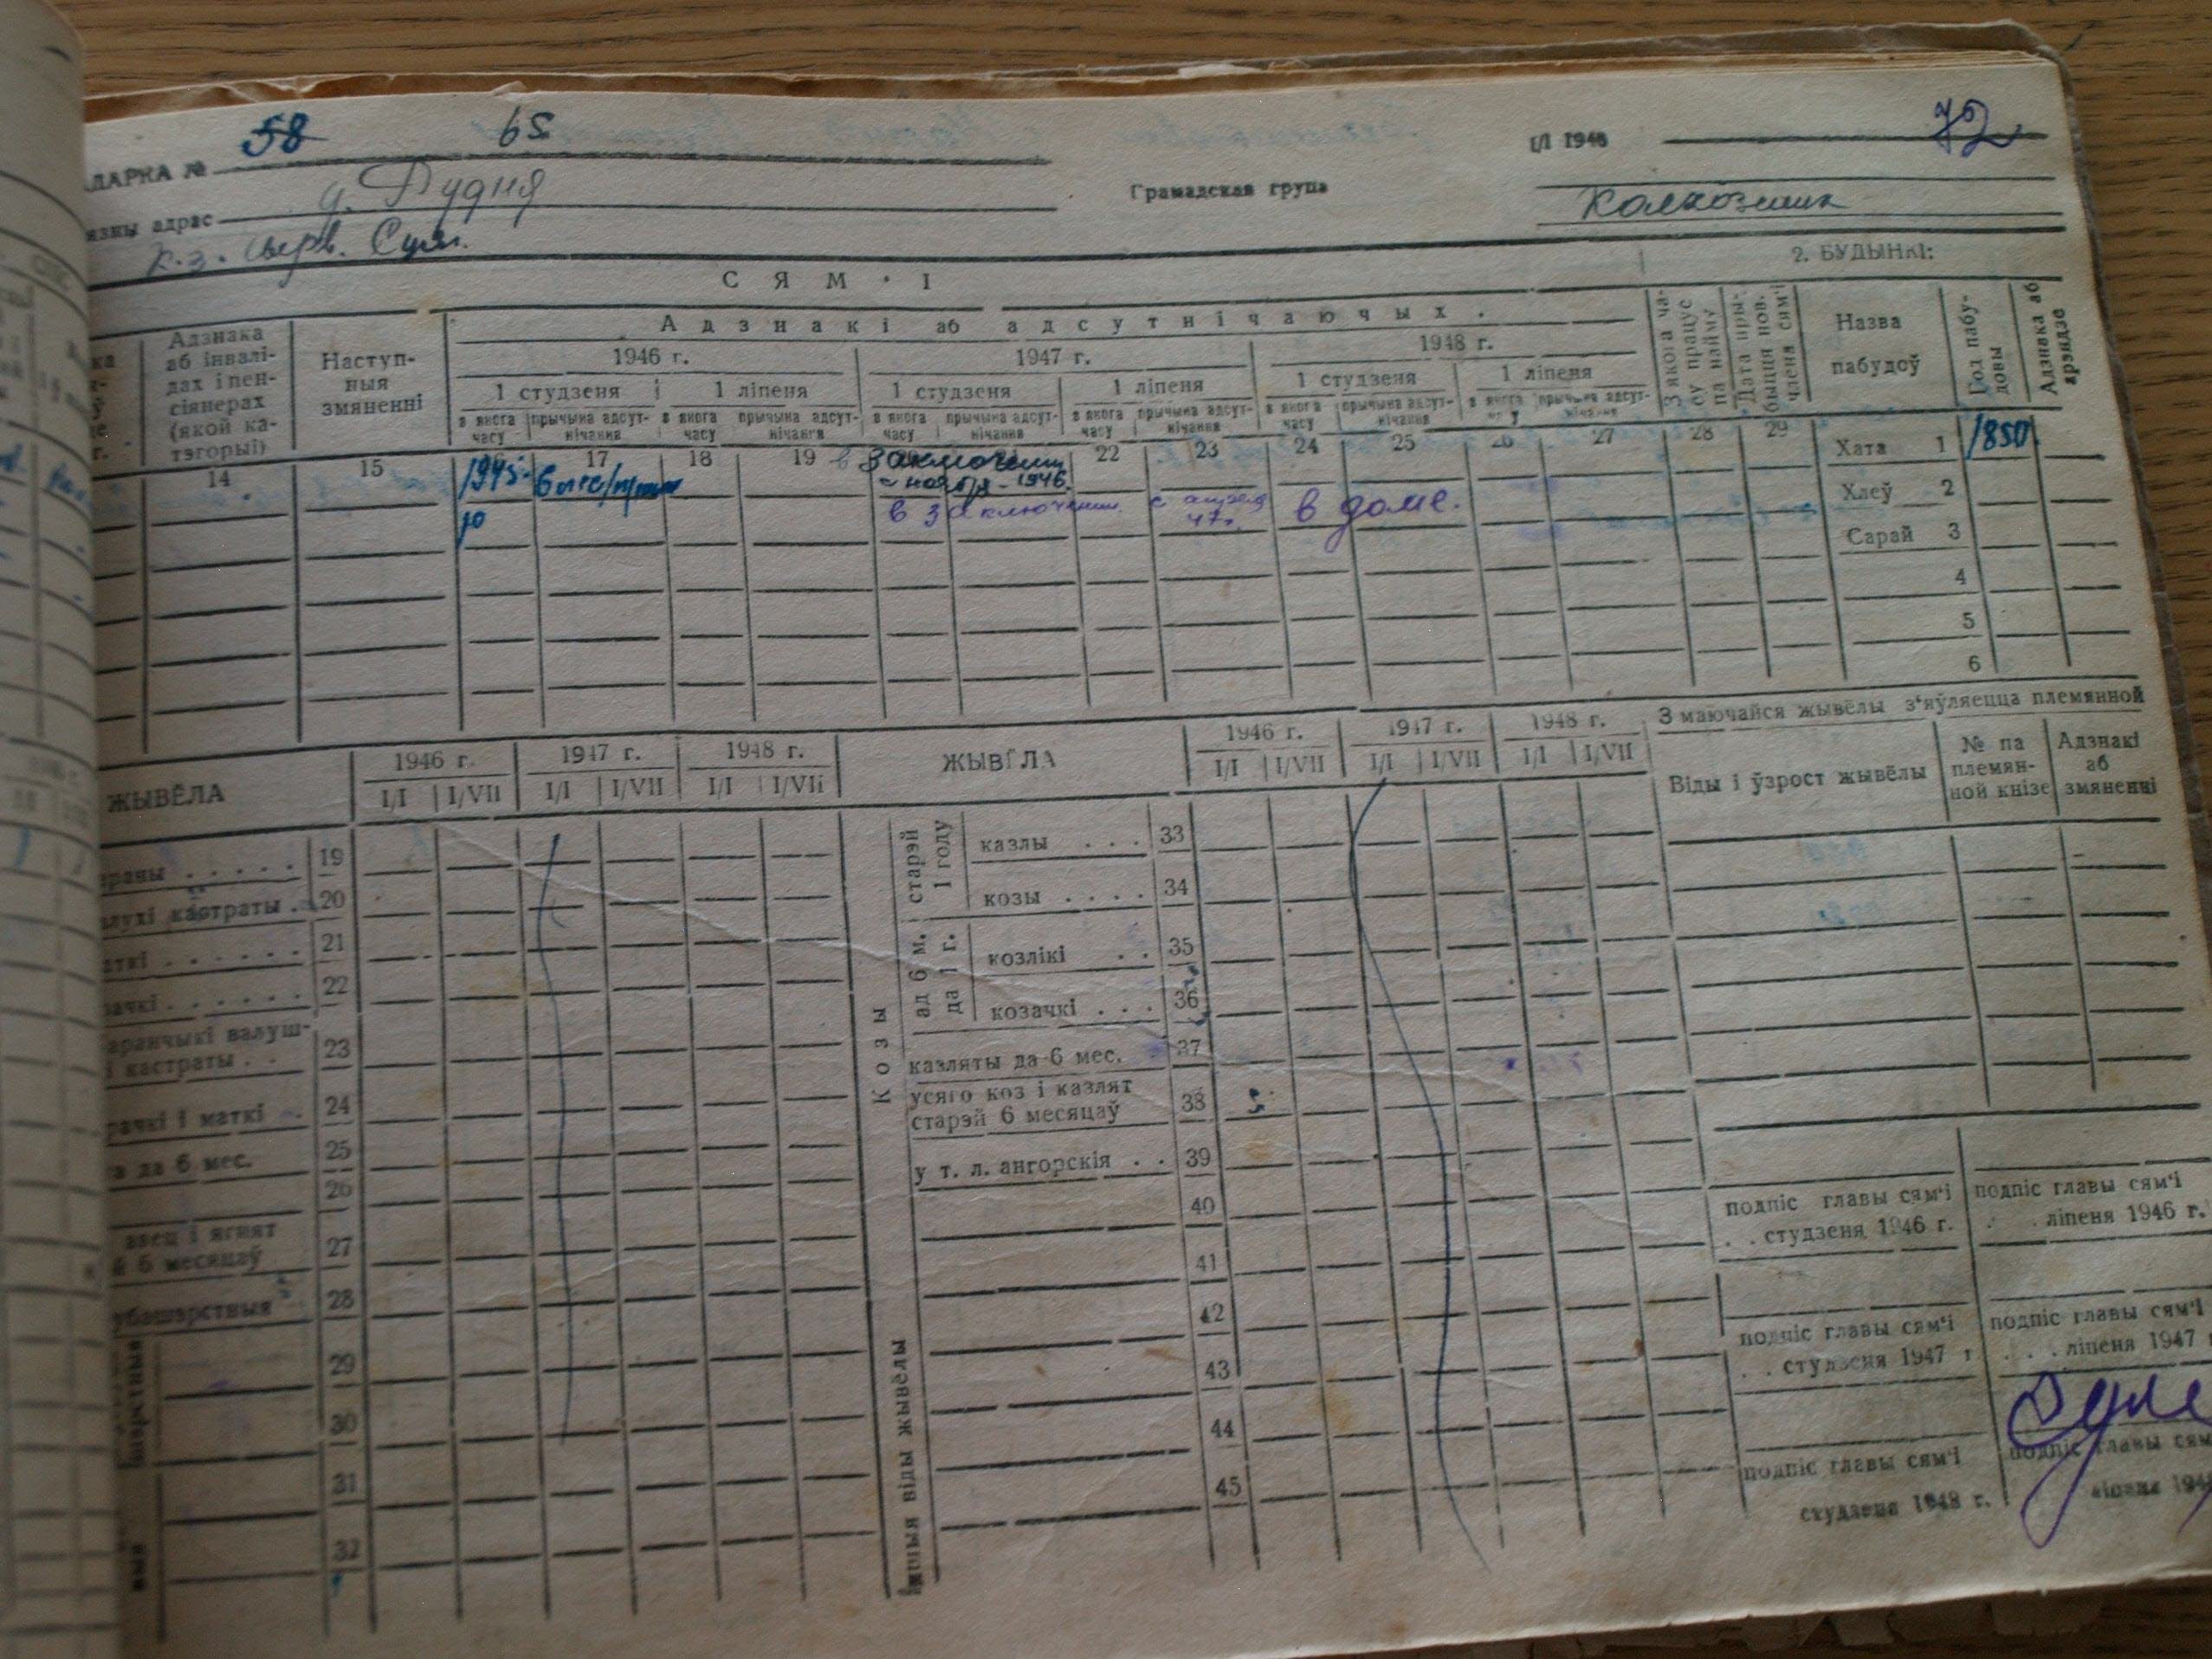 58 65
ДАРКА №
I/I 1948
72
д. Рудня
Грамадская група
Калхозник
адрас
к.з. Чырв.
С Я М ' І
2. БУДЫНКІ:
Адзнака аб інвалідах і пенсіянерах (якой катэгорыі)
Наступныя змяненні
Адзнакі аб адсутнічаючых.
1946 г. 1947 г. 1948 г.
1 студзеня 1 ліпеня 1 студзеня 1 ліпеня 1 студзеня 1 ліпеня
з якога часу прычына адсутнічання з якога часу прычына адсутнічання з якога часу прычына адсутнічання з якога часу прычына адсутнічання з якога часу прычына адсутнічання
прычына адсутнічання
З якога часу працуе па найму
Дата прыбыцця нов. члена сям'і
Назва пабудоў
Год пабудовы
Адзнака аб арэндзе
14 15 17 18 19 22 23 24 25 26 27 28 29
1945
в заключении
с ноября 1946.
в заключении. с апреля 47г.
в доме.
Хата 1 1850
Хлеў 2
Сарай 3
4
5
6
ЖЫВЁЛА
1946 г. 1947 г. 1948 г.
I/I I/VII I/I I/VII I/I I/VII
ЖЫВЁЛА
1946 г. 1947 г. 1948 г.
I/I I/VII I/I I/VII I/I I/VII
З маючайся жывёлы з'яўляецца племянной
Віды і ўзрост жывёлы
№ па племянной кнізе
Адзнакі аб змяненні
19
кастраты 20
21
22
валуш-
і кастраты 23
і маткі 24
да 6 мес. 25
26
авец і ягнят
6 месяцаў 27
28
29
30
31
32
Козы
старэй 1 году
казлы 33
козы 34
ад 6 м. да 1 г.
козлікі 35
козачкі 36
казляты да 6 мес. 37
усяго коз і казлят
старэй 6 месяцаў 38
у т. л. ангорскія 39
віды жывёлы
40
41
42
43
44
45
подпіс главы сям'і
студзеня 1946 г.
подпіс главы сям'і
ліпеня 1946 г.
подпіс главы сям'і
студзеня 1947 г
подпіс главы сям'і
ліпеня 1947
подпіс главы сям'і
студзеня 1948 г.
подпіс главы сям